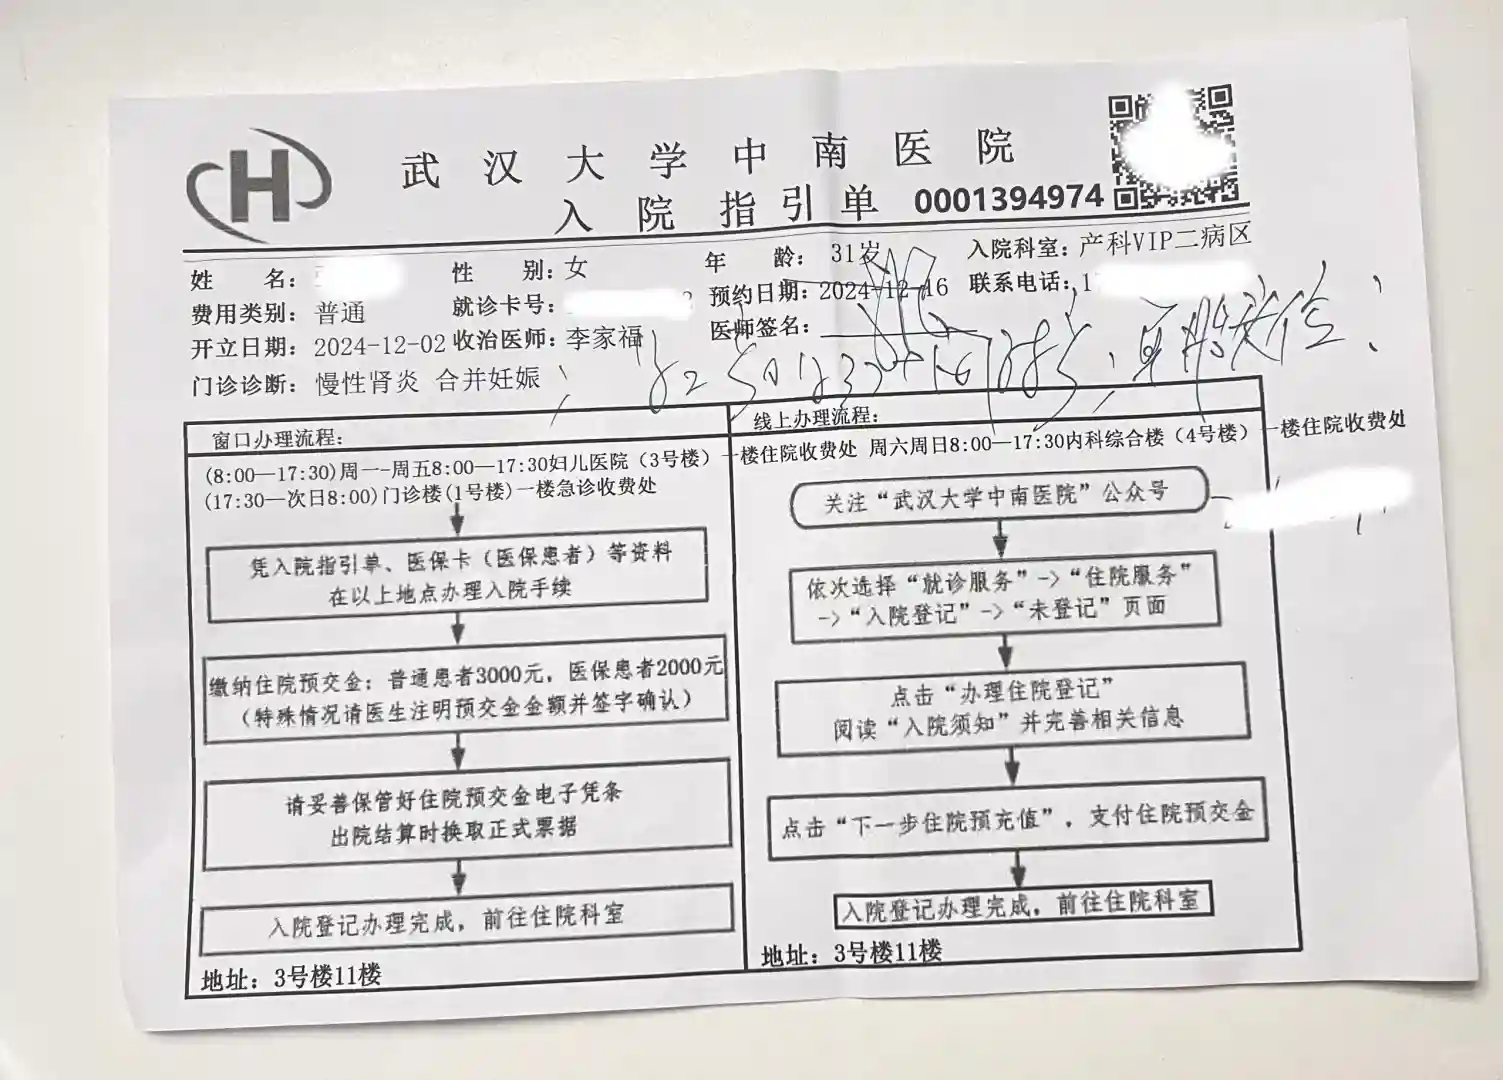 武汉大学中南医院
入院指引单 0001394974
姓 名: 性 别: 女 年 龄: 31岁 入院科室: 产科VIP二病区
费用类别: 普通 就诊卡号: 预约日期: 2024-12-16 联系电话: 1
开立日期: 2024-12-02 收治医师: 李家福 医师签名:
门诊诊断: 慢性肾炎 合并妊娠
窗口办理流程:
(8:00—17:30)周一-周五8:00—17:30妇儿医院（3号楼）一楼住院收费处 周六周日8:00—17:30内科综合楼（4号楼）一楼住院收费处
(17:30—次日8:00)门诊楼(1号楼)一楼急诊收费处
凭入院指引单、医保卡（医保患者）等资料
在以上地点办理入院手续
缴纳住院预交金: 普通患者3000元，医保患者2000元
（特殊情况请医生注明预交金金额并签字确认）
请妥善保管好住院预交金电子凭条
出院结算时换取正式票据
入院登记办理完成，前往住院科室
地址: 3号楼11楼
线上办理流程:
关注“武汉大学中南医院”公众号
依次选择“就诊服务”->“住院服务”
->“入院登记”->“未登记”页面
点击“办理住院登记”
阅读“入院须知”并完善相关信息
点击“下一步住院预充值”，支付住院预交金
入院登记办理完成，前往住院科室
地址: 3号楼11楼